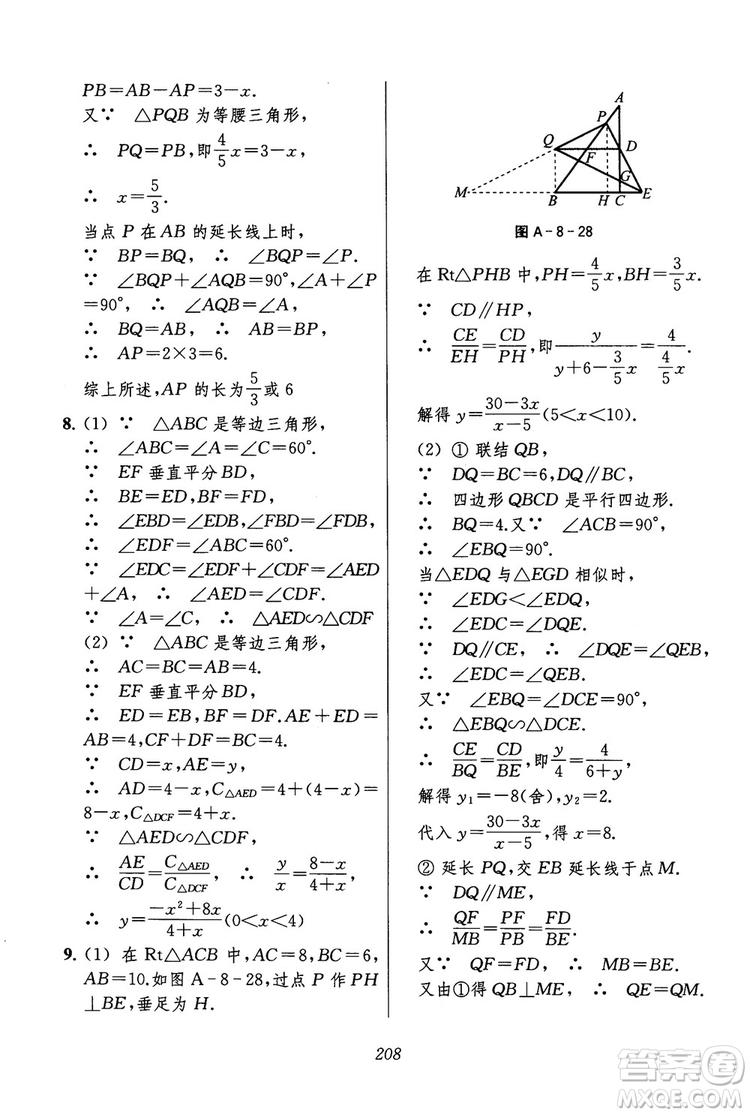 PB=AB-AP=3-x.
又∵ △PQB 为等腰三角形,
∴ PQ=PB,即4/5x=3-x,
∴ x=5/3.
当点 P 在 AB 的延长线上时,
∵ BP=BQ, ∴ ∠BQP=∠P.
∵ ∠BQP+∠AQB=90°,∠A+∠P
=90°, ∴ ∠AQB=∠A,
∴ BQ=AB, ∴ AB=BP,
∴ AP=2×3=6.
综上所述,AP 的长为5/3或 6
8. (1) ∵ △ABC 是等边三角形,
∴ ∠ABC=∠A=∠C=60°.
∵ EF 垂直平分 BD,
∴ BE=ED,BF=FD,
∴ ∠EBD=∠EDB,∠FBD=∠FDB,
∴ ∠EDF=∠ABC=60°.
∵ ∠EDC=∠EDF+∠CDF=∠AED
+∠A, ∴ ∠AED=∠CDF.
∵ ∠A=∠C, ∴ △AED∽△CDF
(2) ∵ △ABC 是等边三角形,
∴ AC=BC=AB=4.
∵ EF 垂直平分 BD,
∴ ED=EB,BF=DF.AE+ED=
AB=4,CF+DF=BC=4.
∵ CD=x,AE=y,
∴ AD=4-x,C△AED=4+(4-x)=
8-x,C△DCF=4+x.
∵ △AED∽△CDF,
∴ AE/CD=C△AED/C△DCF ∴ y/x=8-x/4+x,
∴ y=-x²+8x/4+x(0<x<4)
9. (1) 在 Rt△ACB 中,AC=8,BC=6,
AB=10.如图 A-8-28,过点 P 作 PH
⊥BE,垂足为 H.
A
P
Q
D
F
G
M
B
H
C
E
图 A-8-28
在 Rt△PHB 中,PH=4/5x,BH=3/5x.
∵ CD∥HP,
∴ CE/EH=CD/PH,即y/(y+6-3/5x)=4/(4/5x).
解得 y=30-3x/x-5(5<x<10).
(2) ① 联结 QB,
∵ DQ=BC=6,DQ∥BC,
∴ 四边形 QBCD 是平行四边形.
∴ BQ=4.又∵ ∠ACB=90°,
∴ ∠EBQ=90°.
当△EDQ 与△EGD 相似时,
∵ ∠EDG<∠EDQ,
∴ ∠EDC=∠DQE.
∵ DQ∥CE, ∴ ∠DQE=∠QEB,
∴ ∠EDC=∠QEB.
又∵ ∠EBQ=∠DCE=90°,
∴ △EBQ∽△DCE.
∴ CE/BQ=CD/BE,即y/4=4/6+y,
解得 y₁=-8(舍),y₂=2.
代入 y=30-3x/x-5,得 x=8.
② 延长 PQ,交 EB 延长线于点 M.
∵ DQ∥ME,
∴ QF/MB=PF/PB=FD/BE.
又∵ QF=FD, ∴ MB=BE.
又由①得 QB⊥ME, ∴ QE=QM.
208
答案圈
MXQE.COM